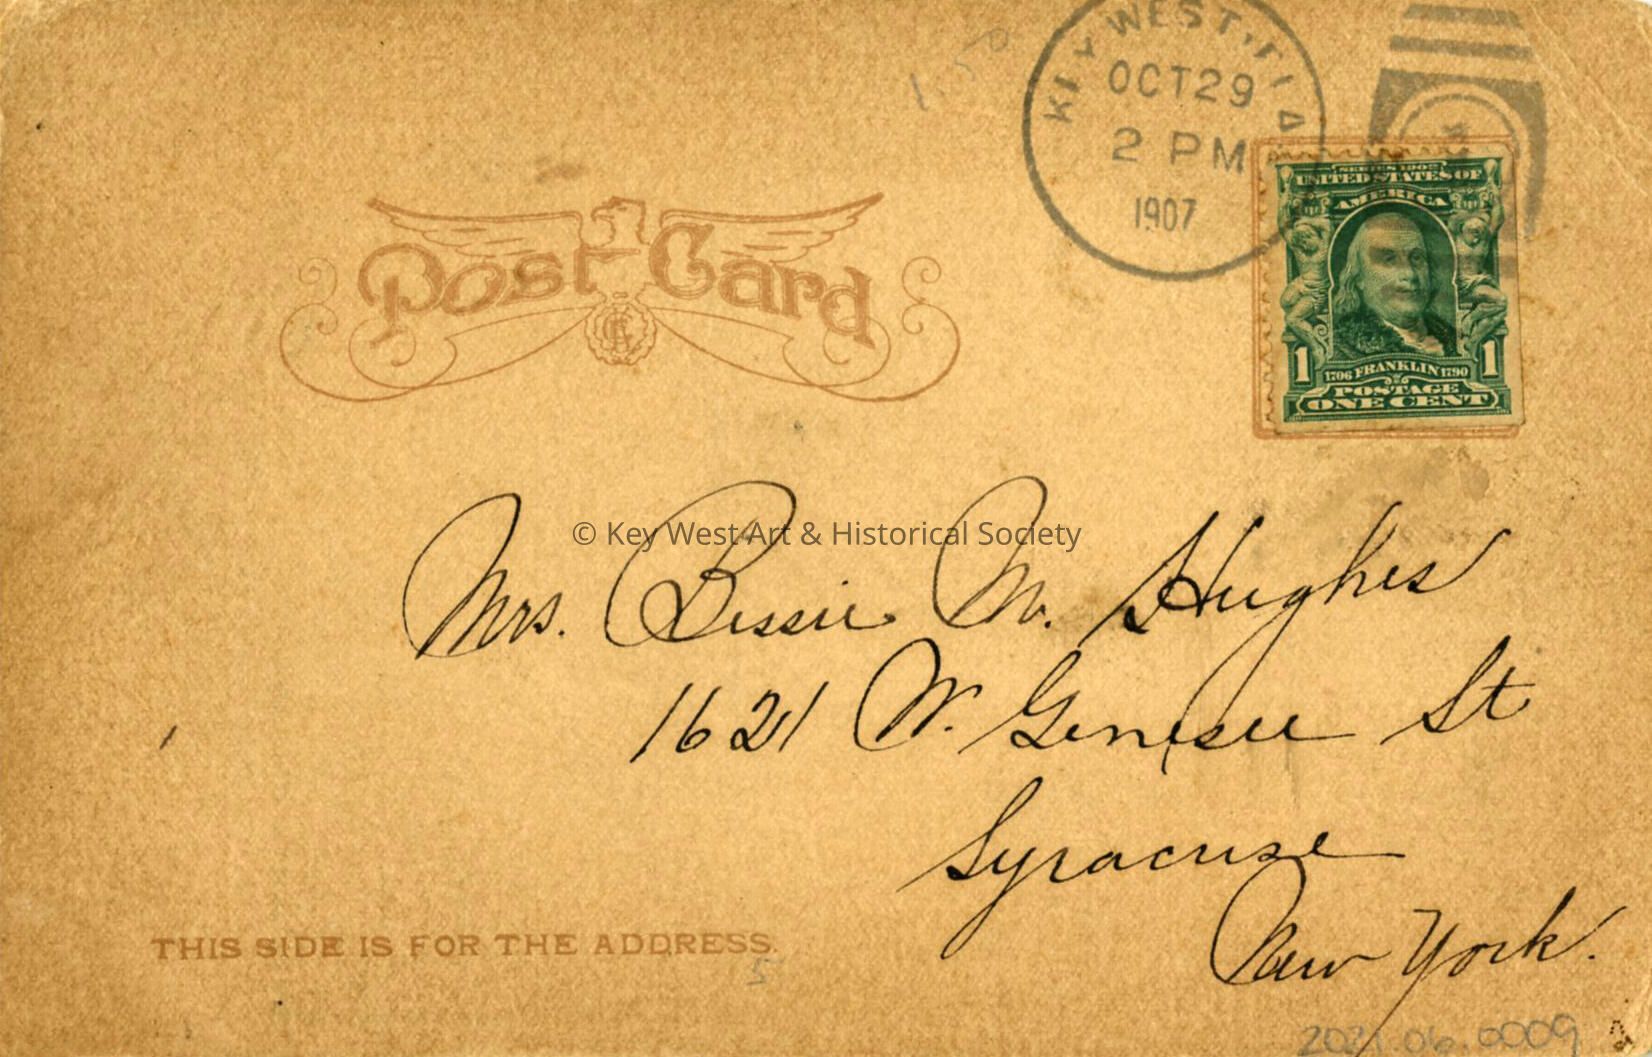 1.50
KEY WEST, FLA
OCT 29
2 PM
1907
Post Card
SERIES 1902
UNITED STATES OF
AMERICA
1 1
1706 FRANKLIN 1790
POSTAGE
ONE CENT
© Key West Art & Historical Society
Mrs. Bessie M. Hughes
1621 W. Genesee St
Syracuse
New York.
THIS SIDE IS FOR THE ADDRESS.
5
2021.06.0009